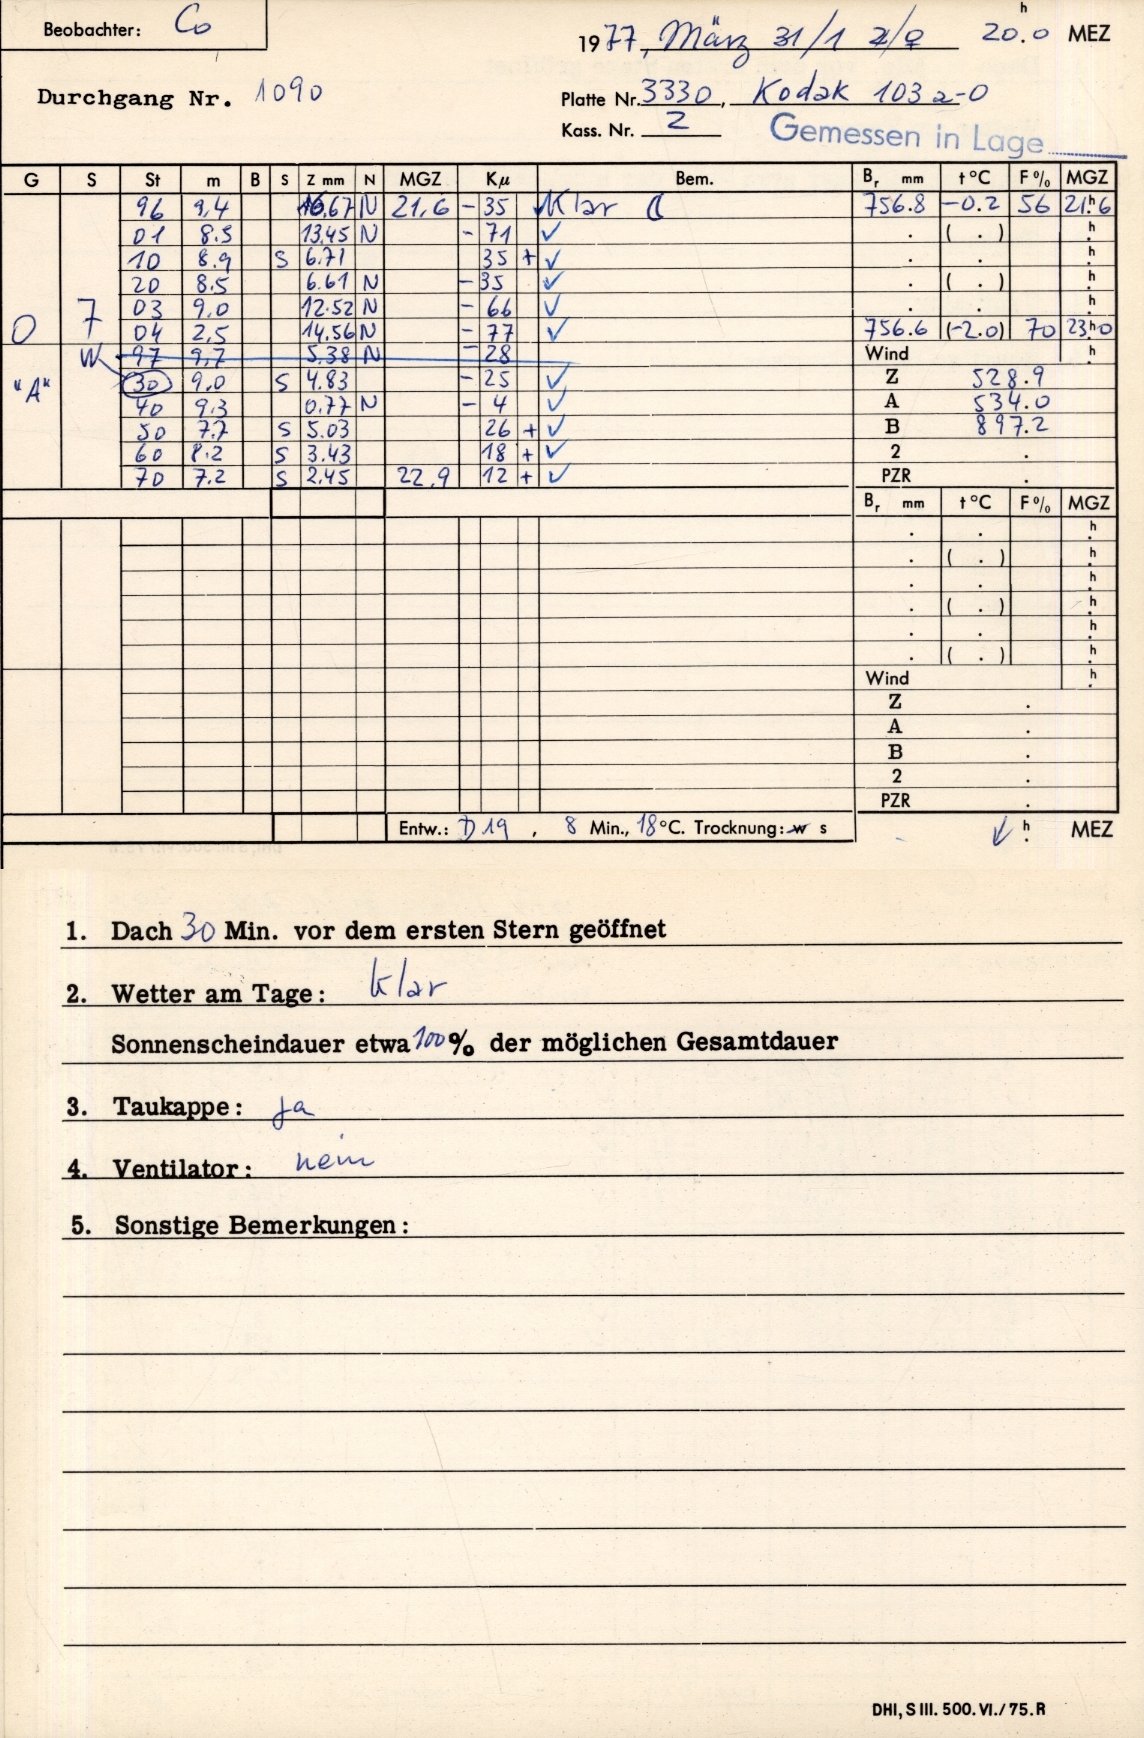 Beobachter: Co
1977, März 31/1 20.0 h MEZ
Durchgang Nr. 1090
Platte Nr. 3330, Kodak 103 a-O
Kass. Nr. 2 Gemessen in Lage
G S St m B S Z mm N MGZ Kμ Bem. Br mm t °C F% MGZ
96 9,4 6.67 N 21,6 - 35 Klar 756.8 -0.2 56 21h6
01 8.5 13.45 N - 71 ✓ . ( . ) h
10 8.9 S 6.71 35 + ✓ . . h
20 8.5 6.61 N - 35 ✓ . ( . ) h
7 03 9,0 12.52 N - 66 ✓ . . h
0 04 2,5 14.56 N - 77 ✓ 756.6 (-2.0) 70 23h0
W 97 9,7 5.38 N - 28 Wind h
"A" 30 9,0 S 4.83 - 25 ✓ Z 528.9
40 9.3 0.77 N - 4 ✓ A 534.0
50 7.7 S 5.03 26 + ✓ B 897.2
60 8.2 S 3.43 18 + ✓ 2 .
70 7.2 S 2.45 22,9 12 + ✓ PZR .
Br mm t °C F% MGZ
. . h
. ( . ) h
. . h
. ( . ) h
. . h
. ( . ) h
Wind h
Z .
A .
B .
2 .
PZR .
Entw.: D 19, 8 Min., 18 °C. Trocknung: w s ✓ h MEZ
1. Dach 30 Min. vor dem ersten Stern geöffnet
2. Wetter am Tage: klar
Sonnenscheindauer etwa 100% der möglichen Gesamtdauer
3. Taukappe: ja
4. Ventilator: nein
5. Sonstige Bemerkungen:
DHI, S III. 500. VI./75. R